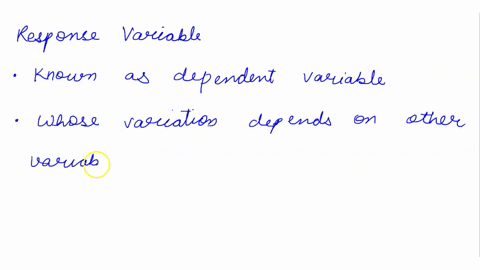 Response Variable
• Known as dependent variable
• Whose variation depends on other
variab